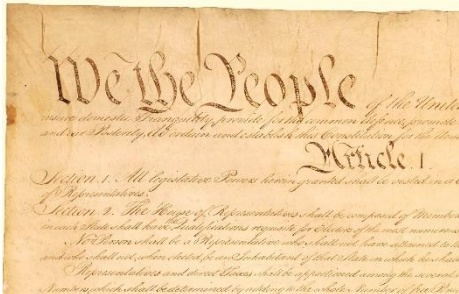 We the People of the United
insure domestic Tranquility, provide for the common defence, promote
and our Posterity, do ordain and establish this Constitution for the United
Article. I.
Section. 1. All legislative Powers herein granted shall be vested in a
of Representatives.
Section. 2. The House of Representatives shall be composed of Members
in each State shall have Qualifications requisite for Electors of the most numerous
No Person shall be a Representative who shall not have attained to the
and who shall not, when elected, be an Inhabitant of that State in which he shall
Representatives and direct Taxes shall be apportioned among the several
Numbers, which shall be determined by adding to the whole Number of free